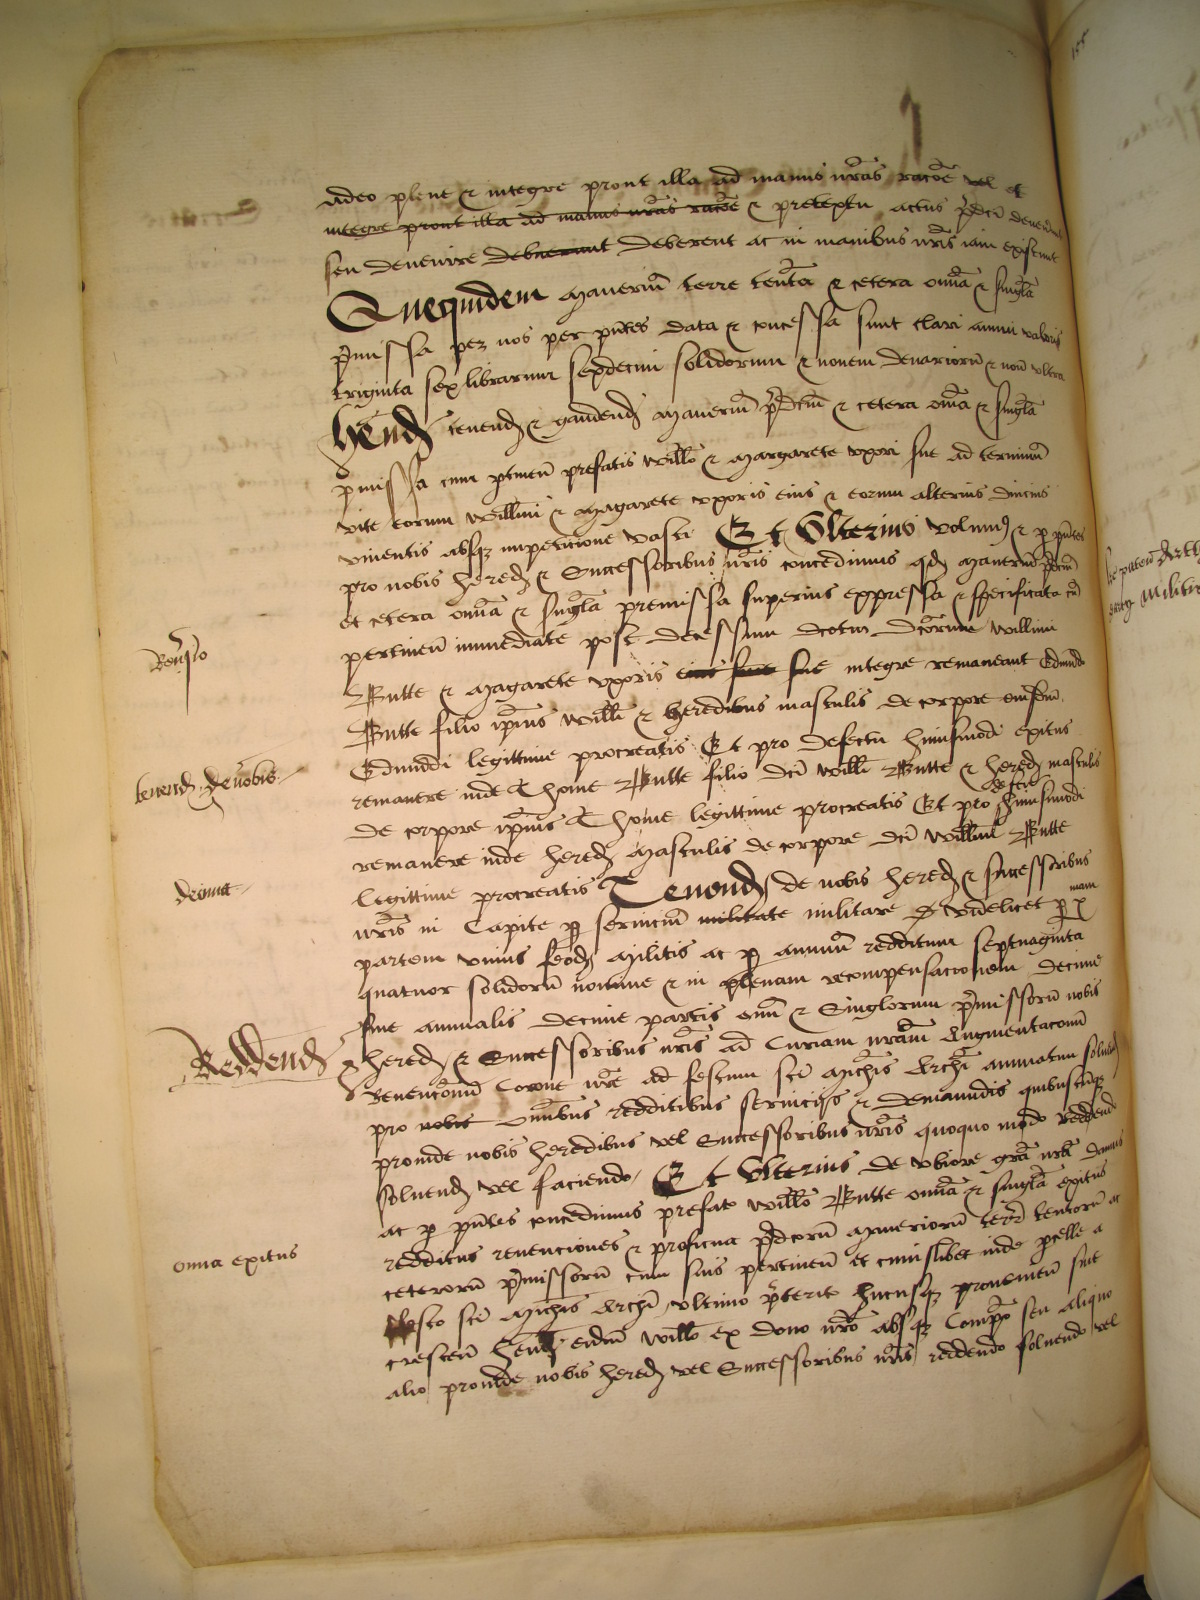 adeo plene & integre prout illa ad manus nras racoe vel et
integre prout illa ad manus nras racoe & pretextu actus pdci devener
seu devenire debuerunt deberent ac in manibus nris iam existunt
Quequidem Maneriu terre tenta & cetera omia & singla
pmissa per nos per pntes data & concessa sunt clari annui valoris
triginta sex librarum sexdecim solidorum & novem denarioru & non ultra
Hend tenend & gaudend Maneriu pdcm & cetera omia & singla
pmissa cum ptinen prefatis Willo & Margarete uxori sue ad terminu
vite eorum Willmi & Magarete uxoris eius & eorum alterius diucius
viventis absqz impeticione vasti Et Ulterius volumus & p pntes
pro nobis hered & Successoribus nris concedimus qd Maneriu pdcm
et cetera omia & singla premissa superius expressa & specificata cu
pertinen immediate post decessum dcoru Willmi
Butte & Magarete uxoris eius sue integre remaneant Edmudo
Butte filio ipius Willi & heredibus masculis de corpore eiusdm
Edmudi legittime procreatis Et pro defectu huiusmodi exitus
remanere inde Thome Butte filio dci Willi Butte & hered masculis
de corpore ipius Thome legittime procreatis Et pro defcu huiusmodi
remanere inde hered Masculis de corpore dci Willmi Butte
legittime procreatis Tenend de nobis hered & successoribus
nris in Capite p serviciu militare militare videlicet p x mam
partem unius feod Militis ac p annuu redditum septuaginta
quatuor solidoru nomine & in plenam recompensacionem decime
sive annualis decime partis omi & Singlorum pmissoru nobis
Reddend hered & Successoribus nris ad Curiam nram Augmentaconu
Revencionu Corone nre ad festum sci Michis Archi annuatim solvend
pro nobis omibus redditibus serviciis & demaundis quibuscuqz
proinde nobis heredibus vel Successoribus nris quoquo modo reddendo
solvend vel faciendo Et Ulterius de uberiore gra nra damus
ac p pntes concedimus prefato Willo Butte omia & singla exitus
redditus revenciones & proficua pdcoru Maneriorum terr tentoru ac
ceteroru pmissoru cum suis pertinen et cuiuslibet inde pcelle a
festo sci Michis Archi ultimo pterit hucusqz provenien sive
crescen Hend eidm Willo ex dono nro absqz Compo seu aliquo
alio proinde nobis hered vel Successoribus nris reddendo solvendo vel
Revsio
tenend de nobis
decima
omia exitus
155